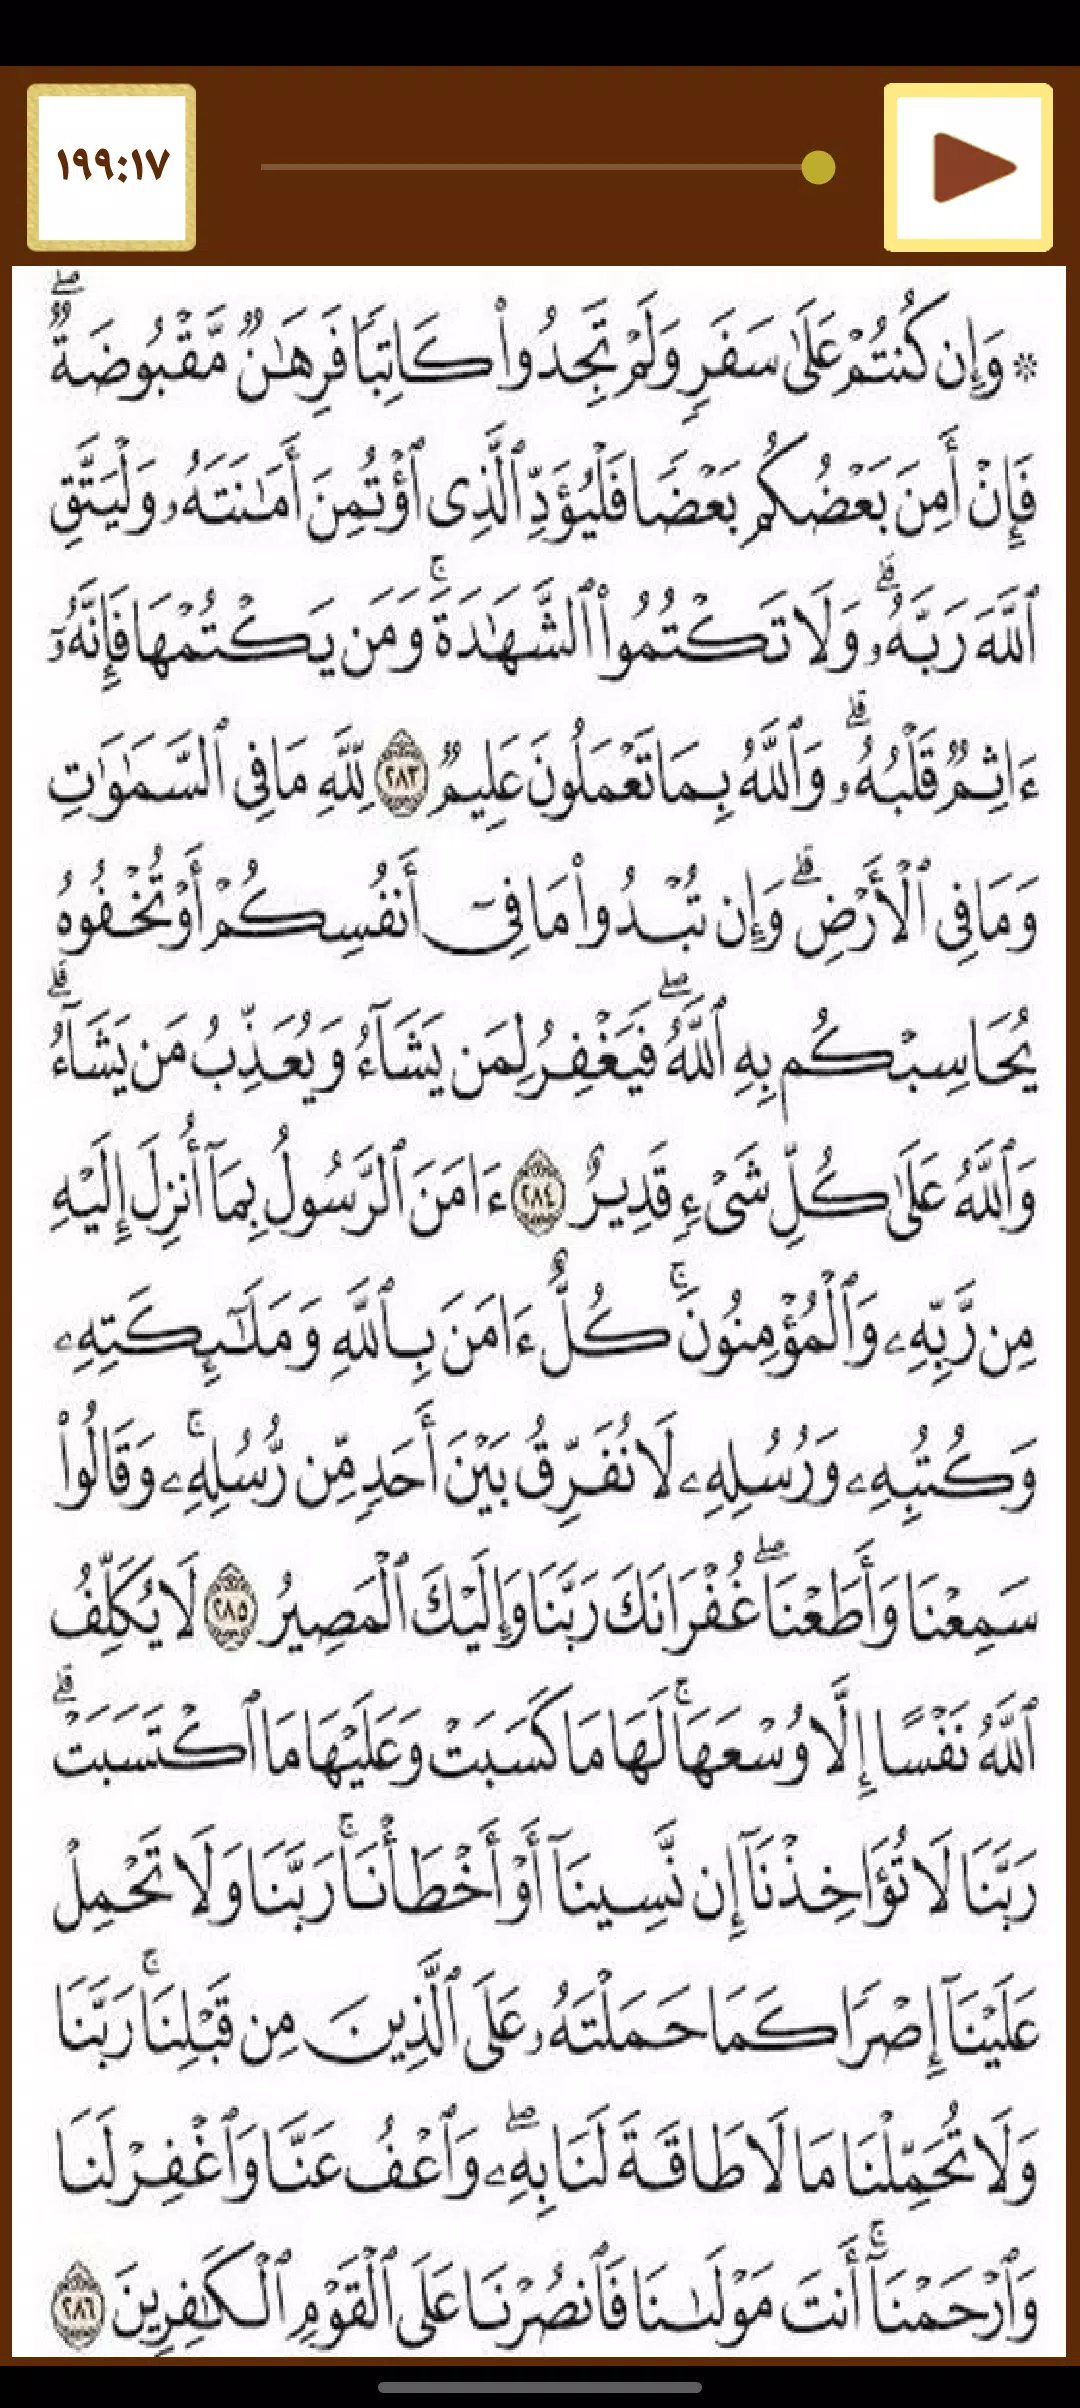 ١٩٩:١٧
* وَإِن كُنتُمْ عَلَىٰ سَفَرٍ وَلَمْ تَجِدُوا۟ كَاتِبًا فَرِهَـٰنٌ مَّقْبُوضَةٌ ۖ
فَإِنْ أَمِنَ بَعْضُكُم بَعْضًا فَلْيُؤَدِّ ٱلَّذِى ٱؤْتُمِنَ أَمَـٰنَتَهُۥ وَلْيَتَّقِ
ٱللَّهَ رَبَّهُۥ ۗ وَلَا تَكْتُمُوا۟ ٱلشَّهَـٰدَةَ ۚ وَمَن يَكْتُمْهَا فَإِنَّهُۥٓ
ءَاثِمٌ قَلْبُهُۥ ۗ وَٱللَّهُ بِمَا تَعْمَلُونَ عَلِيمٌ ٢٨٣ لِّلَّهِ مَا فِى ٱلسَّمَـٰوَٰتِ
وَمَا فِى ٱلْأَرْضِ ۗ وَإِن تُبْدُوا۟ مَا فِىٓ أَنفُسِكُمْ أَوْ تُخْفُوهُ
يُحَاسِبْكُم بِهِ ٱللَّهُ ۖ فَيَغْفِرُ لِمَن يَشَآءُ وَيُعَذِّبُ مَن يَشَآءُ ۗ
وَٱللَّهُ عَلَىٰ كُلِّ شَىْءٍ قَدِيرٌ ٢٨٤ ءَامَنَ ٱلرَّسُولُ بِمَآ أُنزِلَ إِلَيْهِ
مِن رَّبِّهِۦ وَٱلْمُؤْمِنُونَ ۚ كُلٌّ ءَامَنَ بِٱللَّهِ وَمَلَـٰٓئِكَتِهِۦ
وَكُتُبِهِۦ وَرُسُلِهِۦ لَا نُفَرِّقُ بَيْنَ أَحَدٍ مِّن رُّسُلِهِۦ ۚ وَقَالُوا۟
سَمِعْنَا وَأَطَعْنَا ۖ غُفْرَانَكَ رَبَّنَا وَإِلَيْكَ ٱلْمَصِيرُ ٢٨٥ لَا يُكَلِّفُ
ٱللَّهُ نَفْسًا إِلَّا وُسْعَهَا ۚ لَهَا مَا كَسَبَتْ وَعَلَيْهَا مَا ٱكْتَسَبَتْ ۗ
رَبَّنَا لَا تُؤَاخِذْنَآ إِن نَّسِينَآ أَوْ أَخْطَأْنَا ۚ رَبَّنَا وَلَا تَحْمِلْ
عَلَيْنَآ إِصْرًا كَمَا حَمَلْتَهُۥ عَلَى ٱلَّذِينَ مِن قَبْلِنَا ۚ رَبَّنَا
وَلَا تُحَمِّلْنَا مَا لَا طَاقَةَ لَنَا بِهِۦ ۖ وَٱعْفُ عَنَّا وَٱغْفِرْ لَنَا
وَٱرْحَمْنَآ ۚ أَنتَ مَوْلَىٰنَا فَٱنصُرْنَا عَلَى ٱلْقَوْمِ ٱلْكَـٰفِرِينَ ٢٨٦